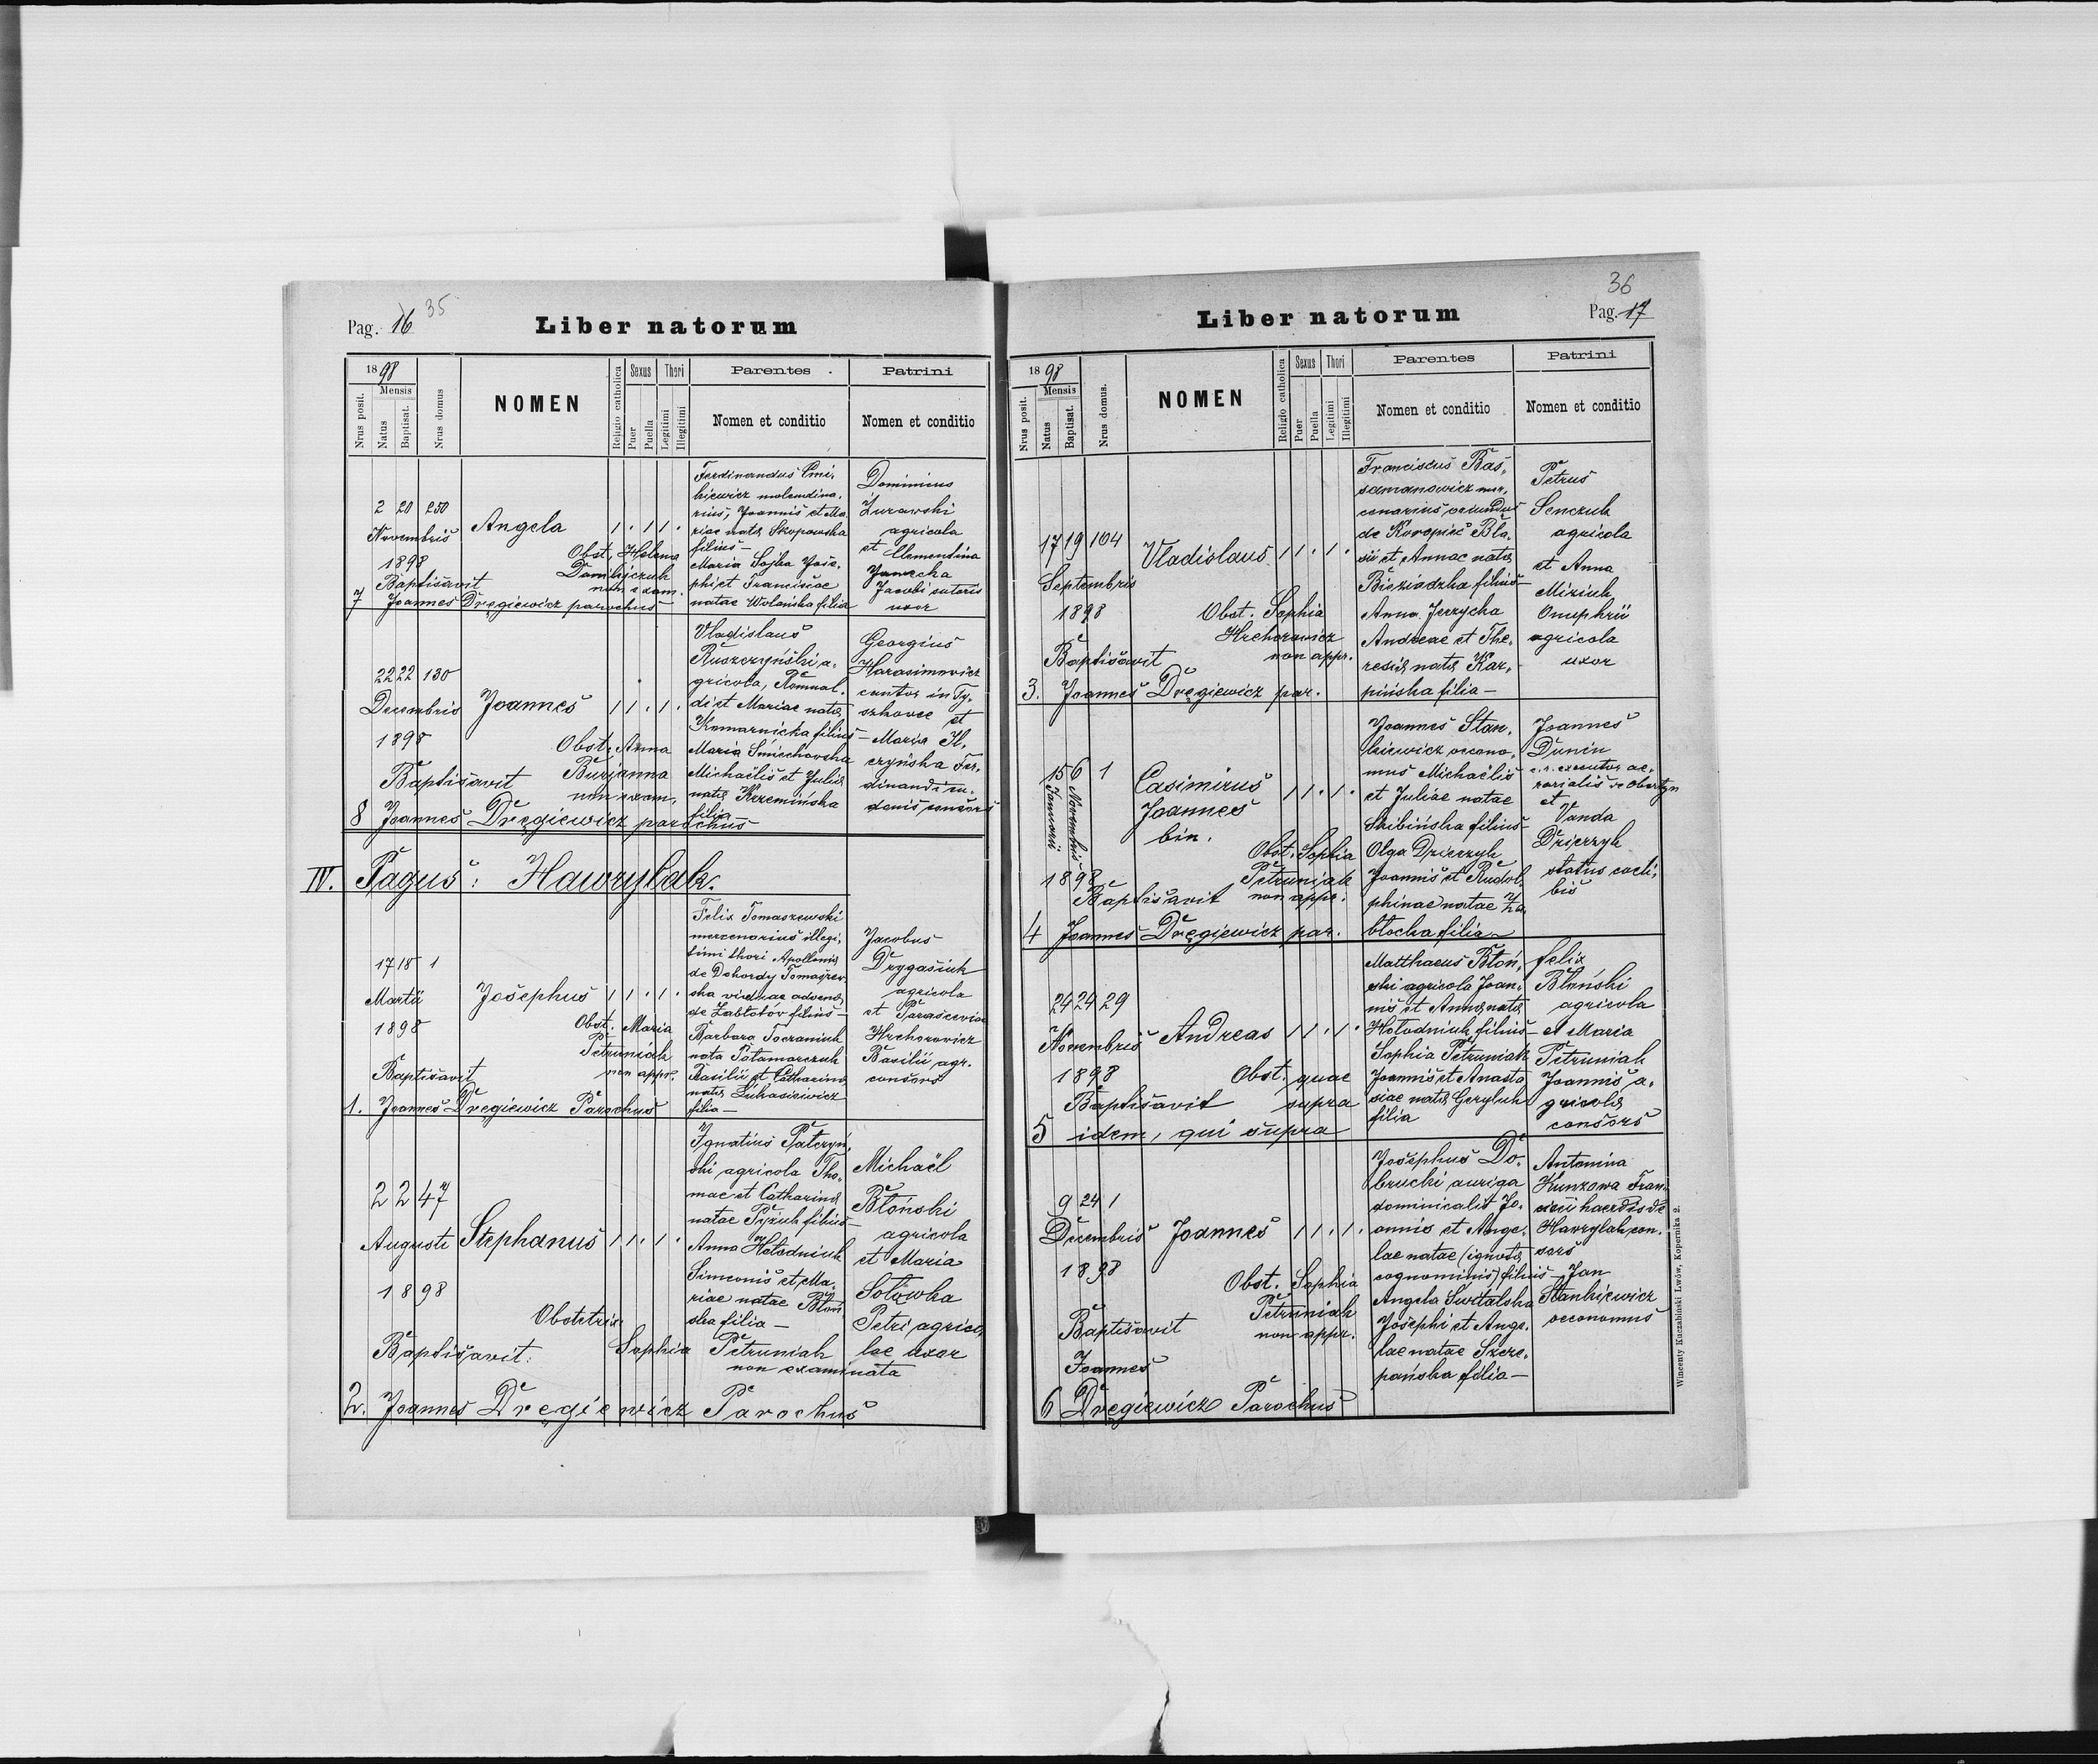 Pag. 16
35
Liber natorum
1898
Nrus posit.
Mensis
Natus
Baptisat.
Nrus domus
NOMEN
Religio catholica
Sexus
Puer
Puella
Thori
Legitimi
Illegitimi
Parentes
Nomen et conditio
Patrini
Nomen et conditio
2 20 250
Novembris
1898
Angela
Obst. Helena
non exam.
Baptisavit
7 Joannes Dręgiewicz parochus
Ferdinandus
molendina,
rius, Joannis et Ma,
riae natae Skupowska
filius —
Maria Sojka Jose,
phi et Franciscae
natae Wolańska filia
Dominicus
Żurawski
agricola
et Clementina
Jacobi sutoris
uxor
22 22 130
Decembris
1898
Joannes
Obst. Anna
Burjanna
non exam.
Baptisavit
8 Joannes Dręgiewicz parochus
Vladislaus
Ruszczyński a,
gricola, Romual,
di et Mariae natae
Komarnicka filius —
Maria Smiechowska
Michaëlis et Juliae
natae Krzemińska
filia —
Georgius
Harasimowicz
cantor in Ty,
szkowce et
Maria Il,
czyńska Fer,
dinandi
IV. Pagus: Hawrylak.
17 18 1
Martii
1898
Josephus
Obst. Maria
Petruniak
non appr.
Baptisavit
1. Joannes Dręgiewicz Parochus
Felix Tomaszewski
mercenarius illegi,
timi thori Apolloniae
de Dohordy Tomaszew
ska viduae advenae
de Zabłotów filius —
Barbara Tocraniuk
nata Patamarczuk
Basilii et Catharinae
natae Lukasiewicz
filia —
Jacobus
Drygasiuk
agricola
et Parascevia
Hrehorowicz
Basilii agr.
consors
2 2 47
Augusti
1898
Stephanus
Obstetrix
Sophia Petruniak
non examinata
Baptisavit:
2. Joannes Dręgiewicz Parochus
Ignatius Patczyń,
ski agricola Tho,
mae et Catharinae
natae Pyżuk filius —
Anna Hołodniuk
Simeonis et Ma,
riae natae Błoń
ska filia —
Michaël
Błoński
agricola
et Maria
Sotówka
Petri agrico,
lae uxor
36
Pag. 17
Liber natorum
1898
Nrus posit.
Mensis
Natus
Baptisat.
Nrus domus.
NOMEN
Religio catholica
Sexus
Puer
Puella
Thori
Legitimi
Illegitimi
Parentes
Nomen et conditio
Patrini
Nomen et conditio
17 19 104
Septembris
1898
Vladislaus
Obst. Sophia
Hrehorowicz
non appr.
Baptisavit
3. Joannes Dręgiewicz par.
Franciscus Bas,
samanowicz mer,
cenarius oriundus
de Koropiec Bla,
sii et Annae natae
Bieziadzka filius —
Anna Jerzycka
Andreae et The,
resiae natae Kar,
pińska filia —
Petrus
Senczuk
agricola
et Anna
Miziuk
Onuphrii
agricola
uxor
15 6 1
Januarii
Novembris
1898
Casimirus
Joannes
bin.
Obst. Sophia
Petruniak
non appr.
Baptisavit
4 Joannes Dręgiewicz par.
Joannes Stan,
kiewicz oecono,
mus Michaëlis
et Juliae natae
Skibińska filius —
Olga Dzierzyk
Joannis et Rudol,
phinae natae Za,
błocka filia —
Joannes
Dunin
c. r. executor ae,
rarialis de Obertyn
et
Vanda
Dzierzyk
status coeli,
bis
24 24 29
Novembris
1898
Andreas
Obst. quae
supra
Baptisavit
5 idem, qui supra
Matthaeus Błoń,
ski agricola Joan,
nis et Annae natae
Hołodniuk filius —
Sophia Petruniak
Joannis et Anasta
siae natae Geryluk
filia
Felix
Błoński
agricola
et Maria
Petruniak
Joannis a,
gricolae
consors
9 24 1
Decembris
1898
Joannes
Obst. Sophia
Petruniak
non appr.
Baptisavit
Joannes
6 Dręgiewicz Parochus
Josephus Do,
brucki auriga
dominicalis Jo,
annis et Ange,
lae natae (ignotae
cognominis) filius —
Angela Switalska
Josephi et Ange,
lae natae Szcze,
pańska filia —
Antonina
Kunzowa Fran,
cisci haeredis de
Hawrylak con,
sors
Jan
Stankiewicz
oeconomus
Wincenty Kuczabiński Lwów, Kopernika 2.